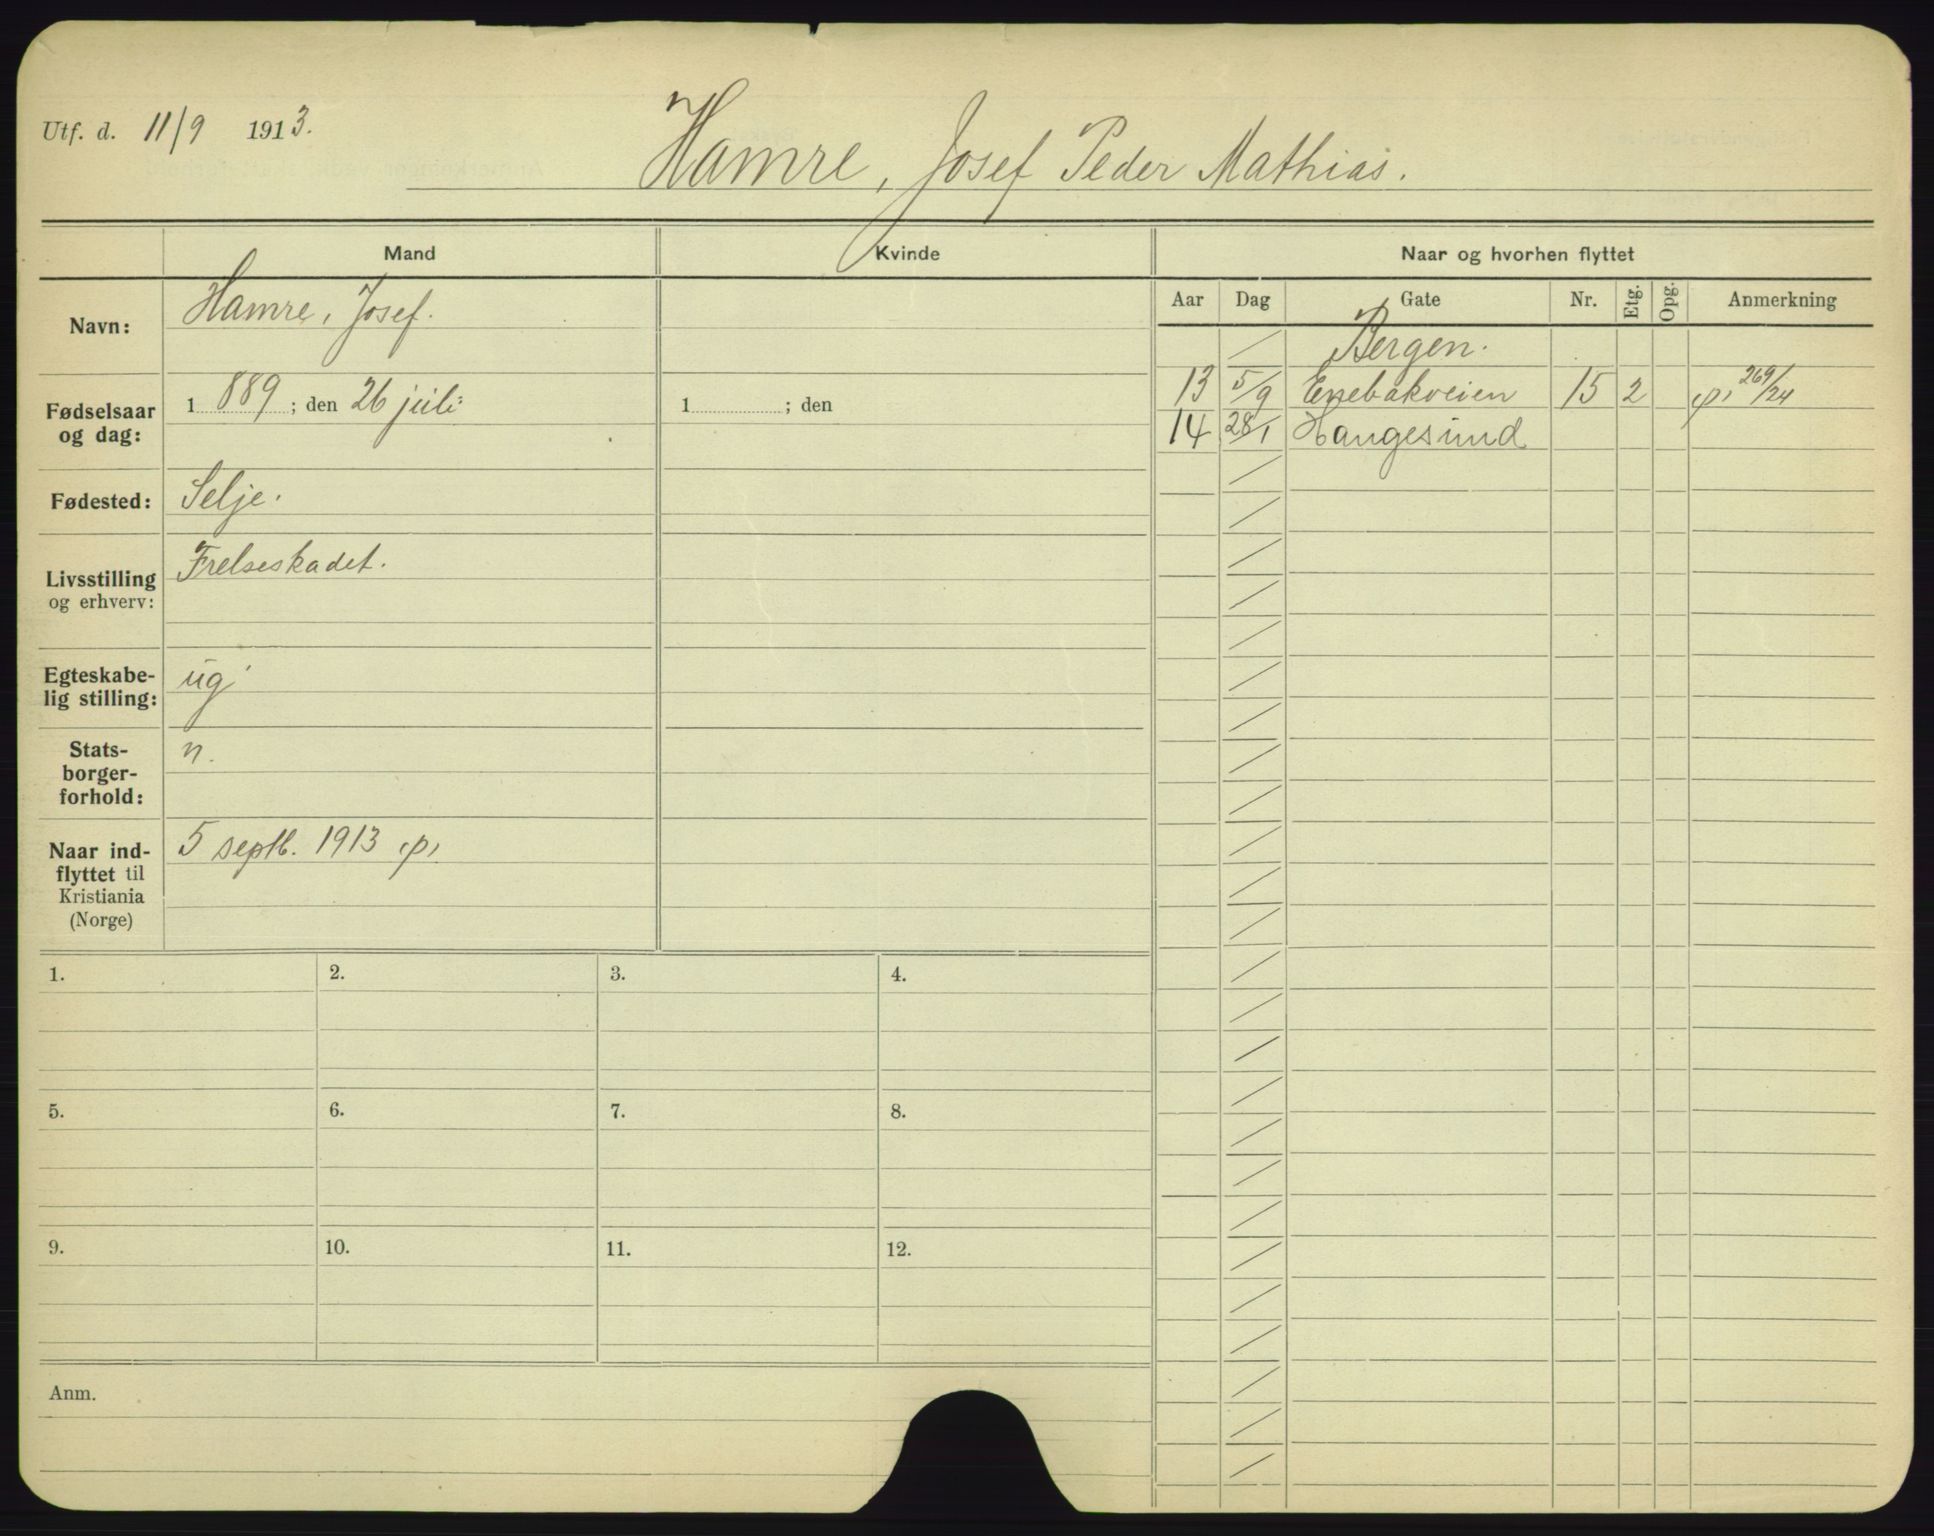 Utf. d. 11/9 1913.
Hamre, Josef Peder Mathias.
Mand
Kvinde
Naar og hvorhen flyttet
Navn: Hamre, Josef.
Fødselsaar og dag: 1889; den 26 juli
1 ; den
Fødested: Selje.
Livsstilling og erhverv: Frelseskadet.
Egteskabe-
lig stilling: ug
Stats-
borger-
forhold: n.
Naar ind-
flyttet til
Kristiania
(Norge) 5 septb. 1913 p,
Aar Dag Gate Nr. Etg. Opg. Anmerkning
/ Bergen.
13 5/9 Enebakveien 15 2 p, 269/24
14 28/1 Haugesund
1. 2. 3. 4.
5. 6. 7. 8.
9. 10. 11. 12.
Anm.